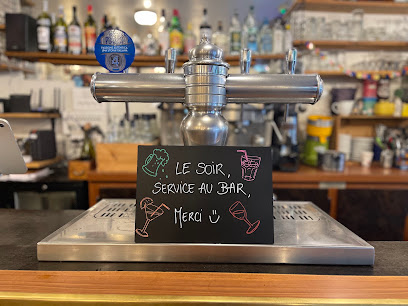 LE SOIR,
SERVICE AU BAR,
MERCI :)